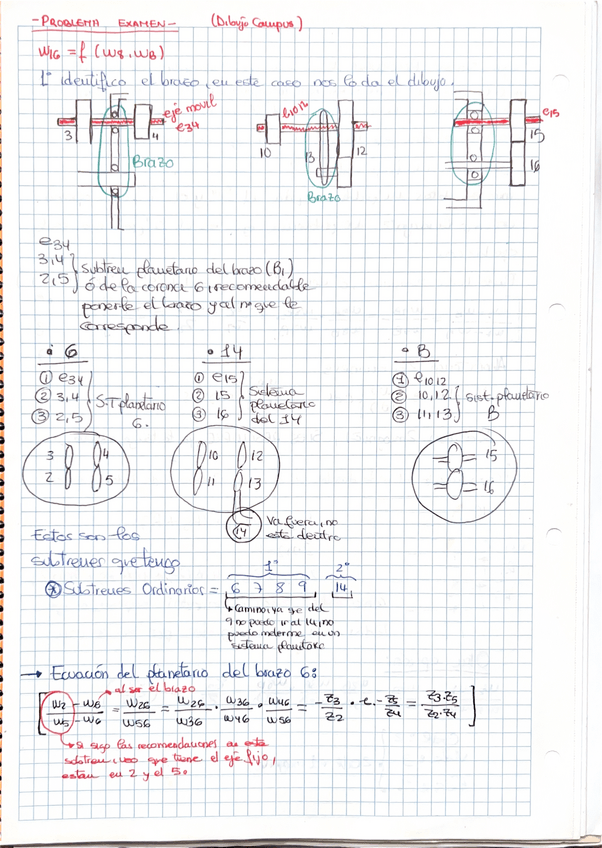 -PROBLEMA EXAMEN- (Dibujo Campus)
W16 = f (W8, WB)
1º identifico el brazo, en este caso nos lo da el dibujo.
eje movil
e34
3
4
Brazo
e10,12
10
13
12
Brazo
e15
15
16
e34
3,4
2,5
Subtren planetario del brazo (B1)
ó de la corona 6, recomendable
ponerle el brazo y al nº que le
corresponde.
• 6
① e34
② 3,4
③ 2,5
S.T planetario
6.
• 14
① e15
② 15
③ 16
Sistema
planetario
del 14
• B
① e10,12
② 10,12
③ 11,13
Sist. planetario
B
3 4
2 5
10 12
11 13
14
Va fuera, no
está dentro
15
16
Estos son los
subtrenes que tengo
1º 2º
⊗ Subtrenes Ordinarios = 6 7 8 9 14
Camino, ya que del
9 no puedo ir al 14, no
puedo meterme en un
sistema planetario
→ Ecuación del planetario del brazo 6:
al ser el brazo
[ W2 - W6 / W5 - W6 = W26 / W56 = W26 / W36 · W36 / W46 · W46 / W56 = - Z3 / Z2 · 1 · - Z5 / Z4 = Z3·Z5 / Z2·Z4 ]
si sigo las recomendaciones en este
subtren, veo que tiene el eje fijo,
están en 2 y el 5.